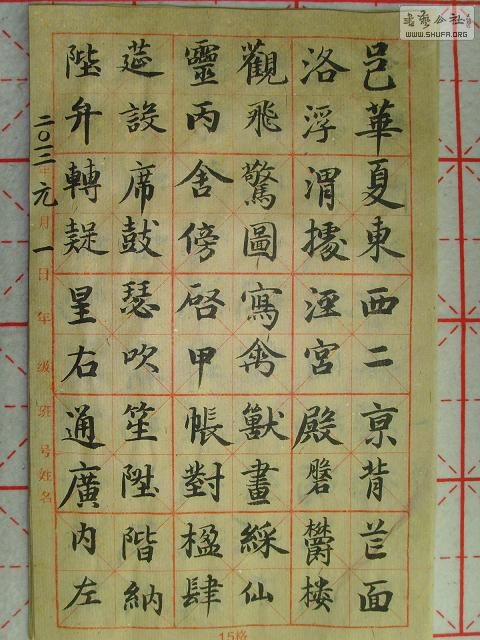 邑華夏東西二京背芒面
洛浮渭據涇宮殿磐欝楼
觀飛驚圖寫禽獸畫綵仙
靈丙舍傍啓甲帳對楹肆
筵設席鼓瑟吹笙陞階納
陛弁轉疑星右通廣内左
二〇一二年元月一日 年 级 班 号 姓名
15格
書藝公社
WWW.SHUFA.ORG